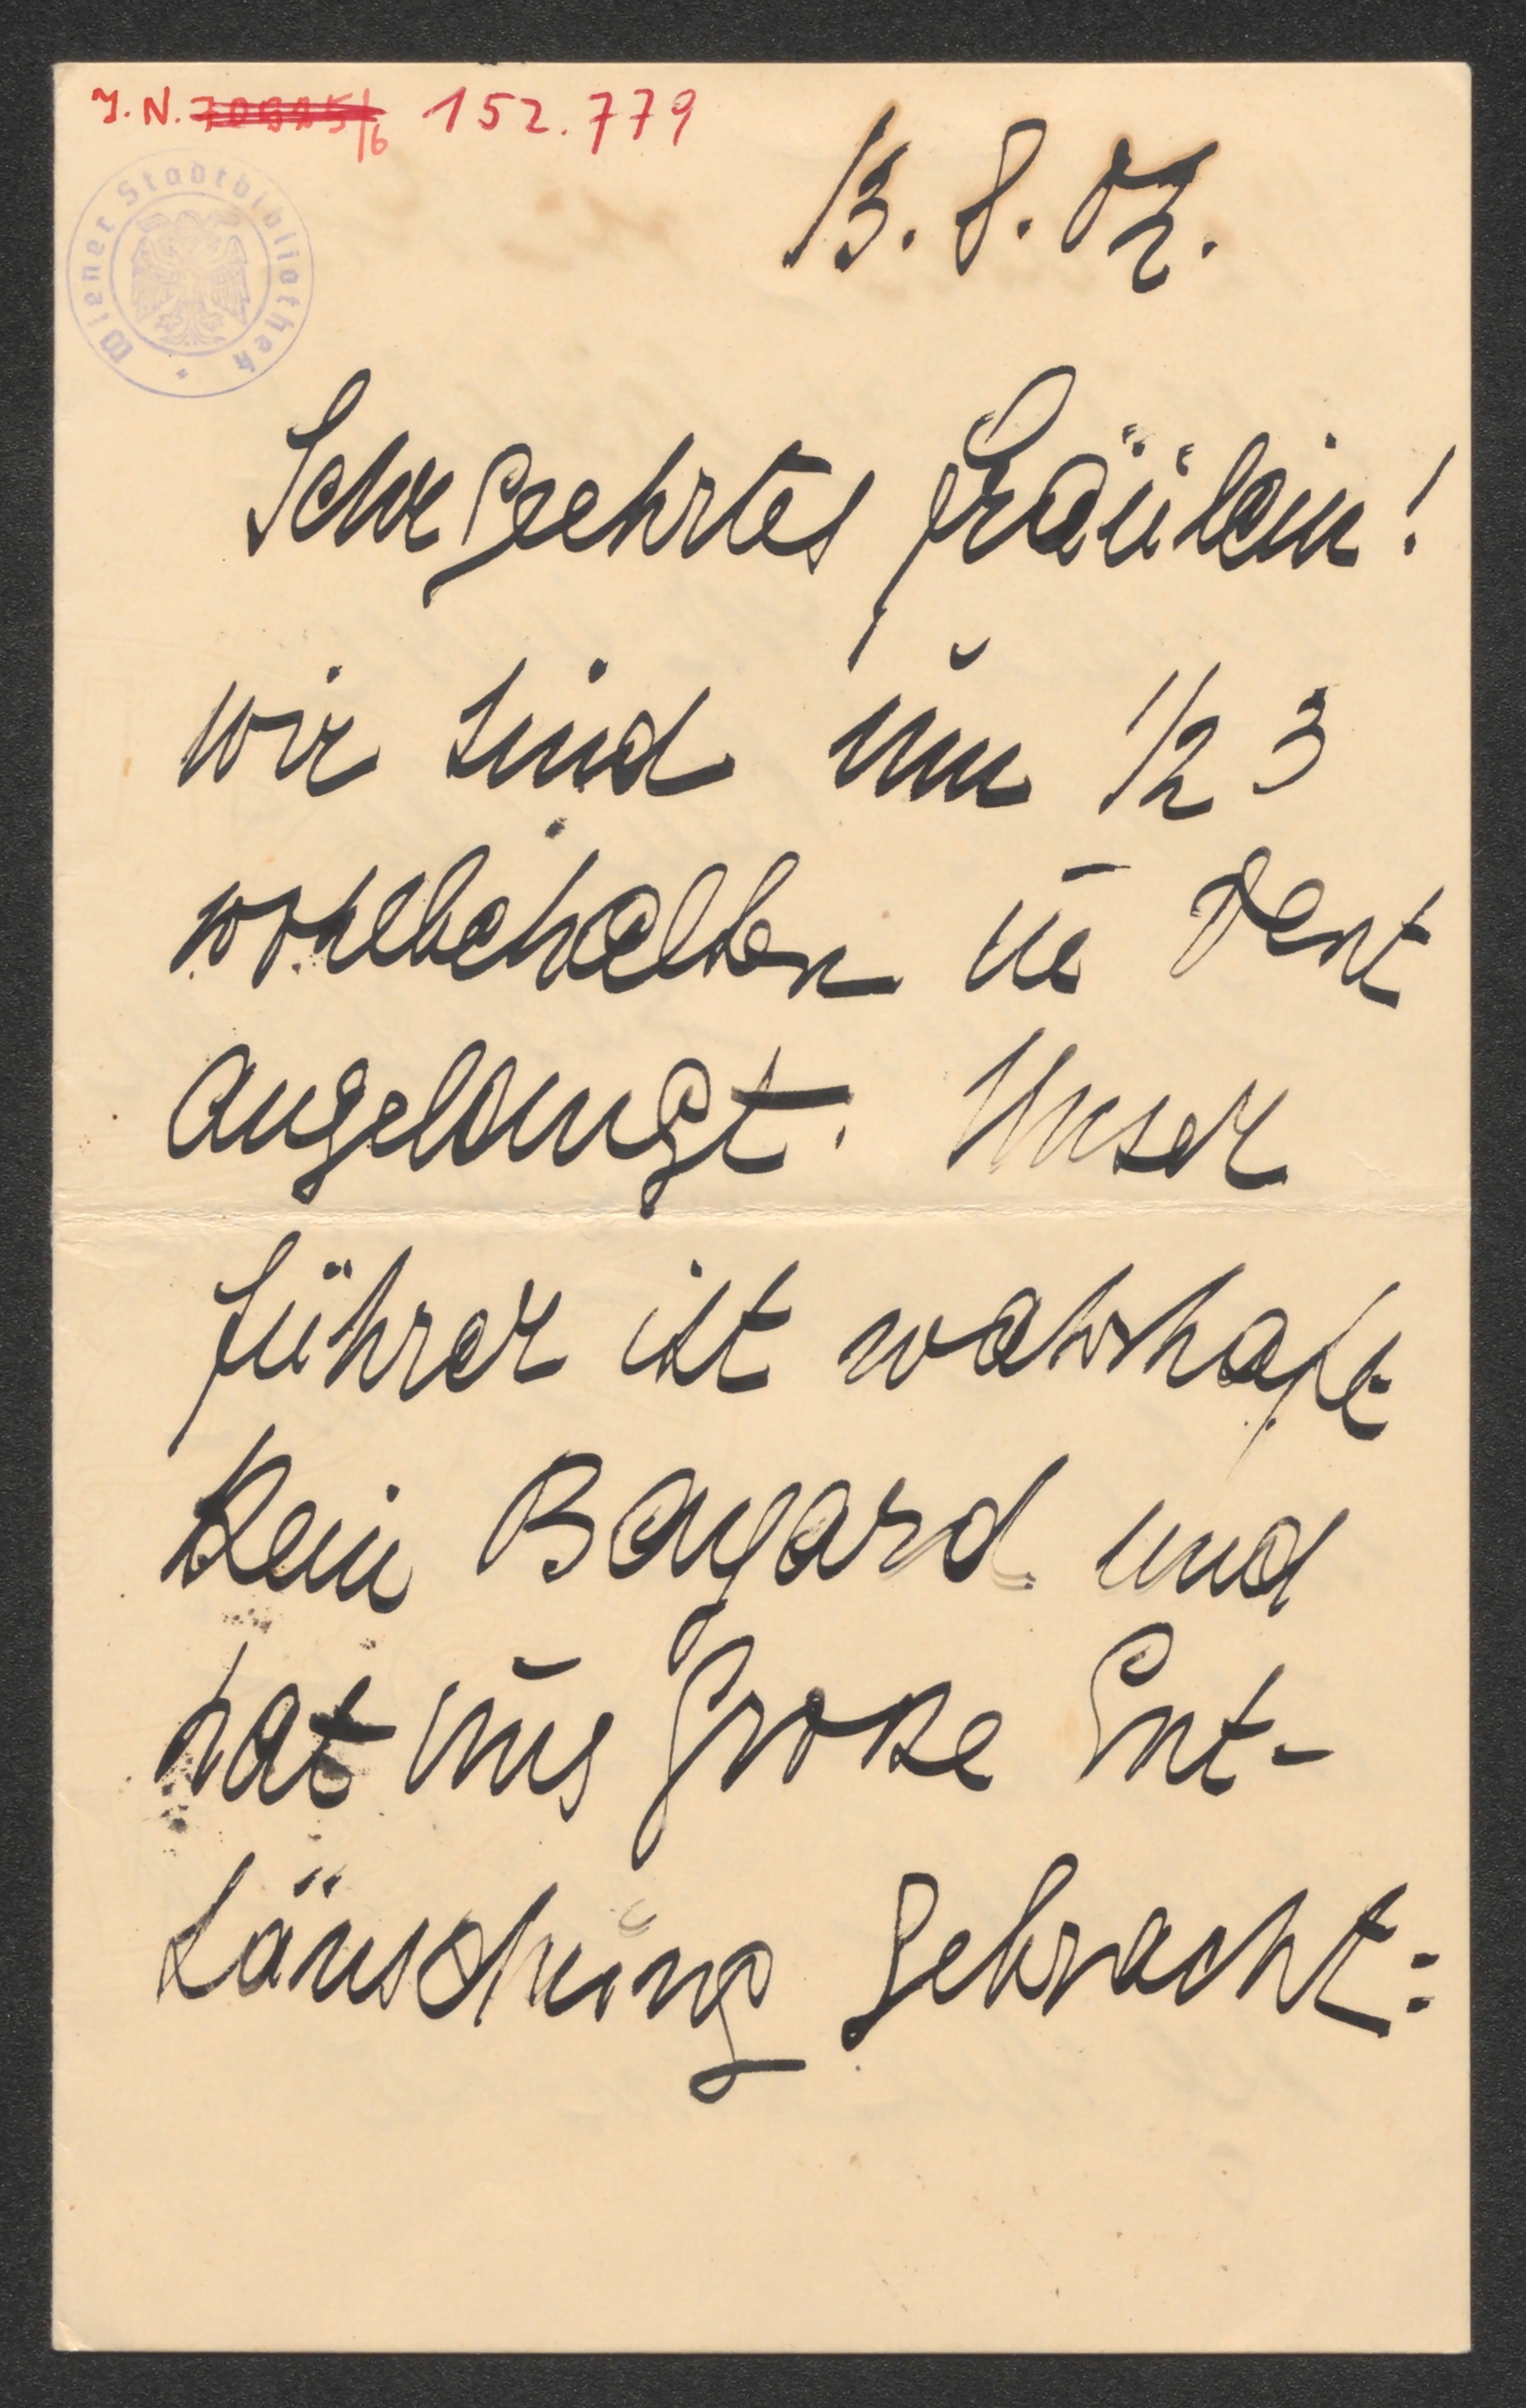 J. N. 152.779
Wiener Stadtbibliothek
13. 8. 07.
Sehr geehrtes Fräulein!
wir sind um 1/2 3
wohlbehalten in Vent
angelangt. Unser
Führer ist wahrhaft
kein Bayard und
hat uns grosse Ent-
täuschung gebracht: